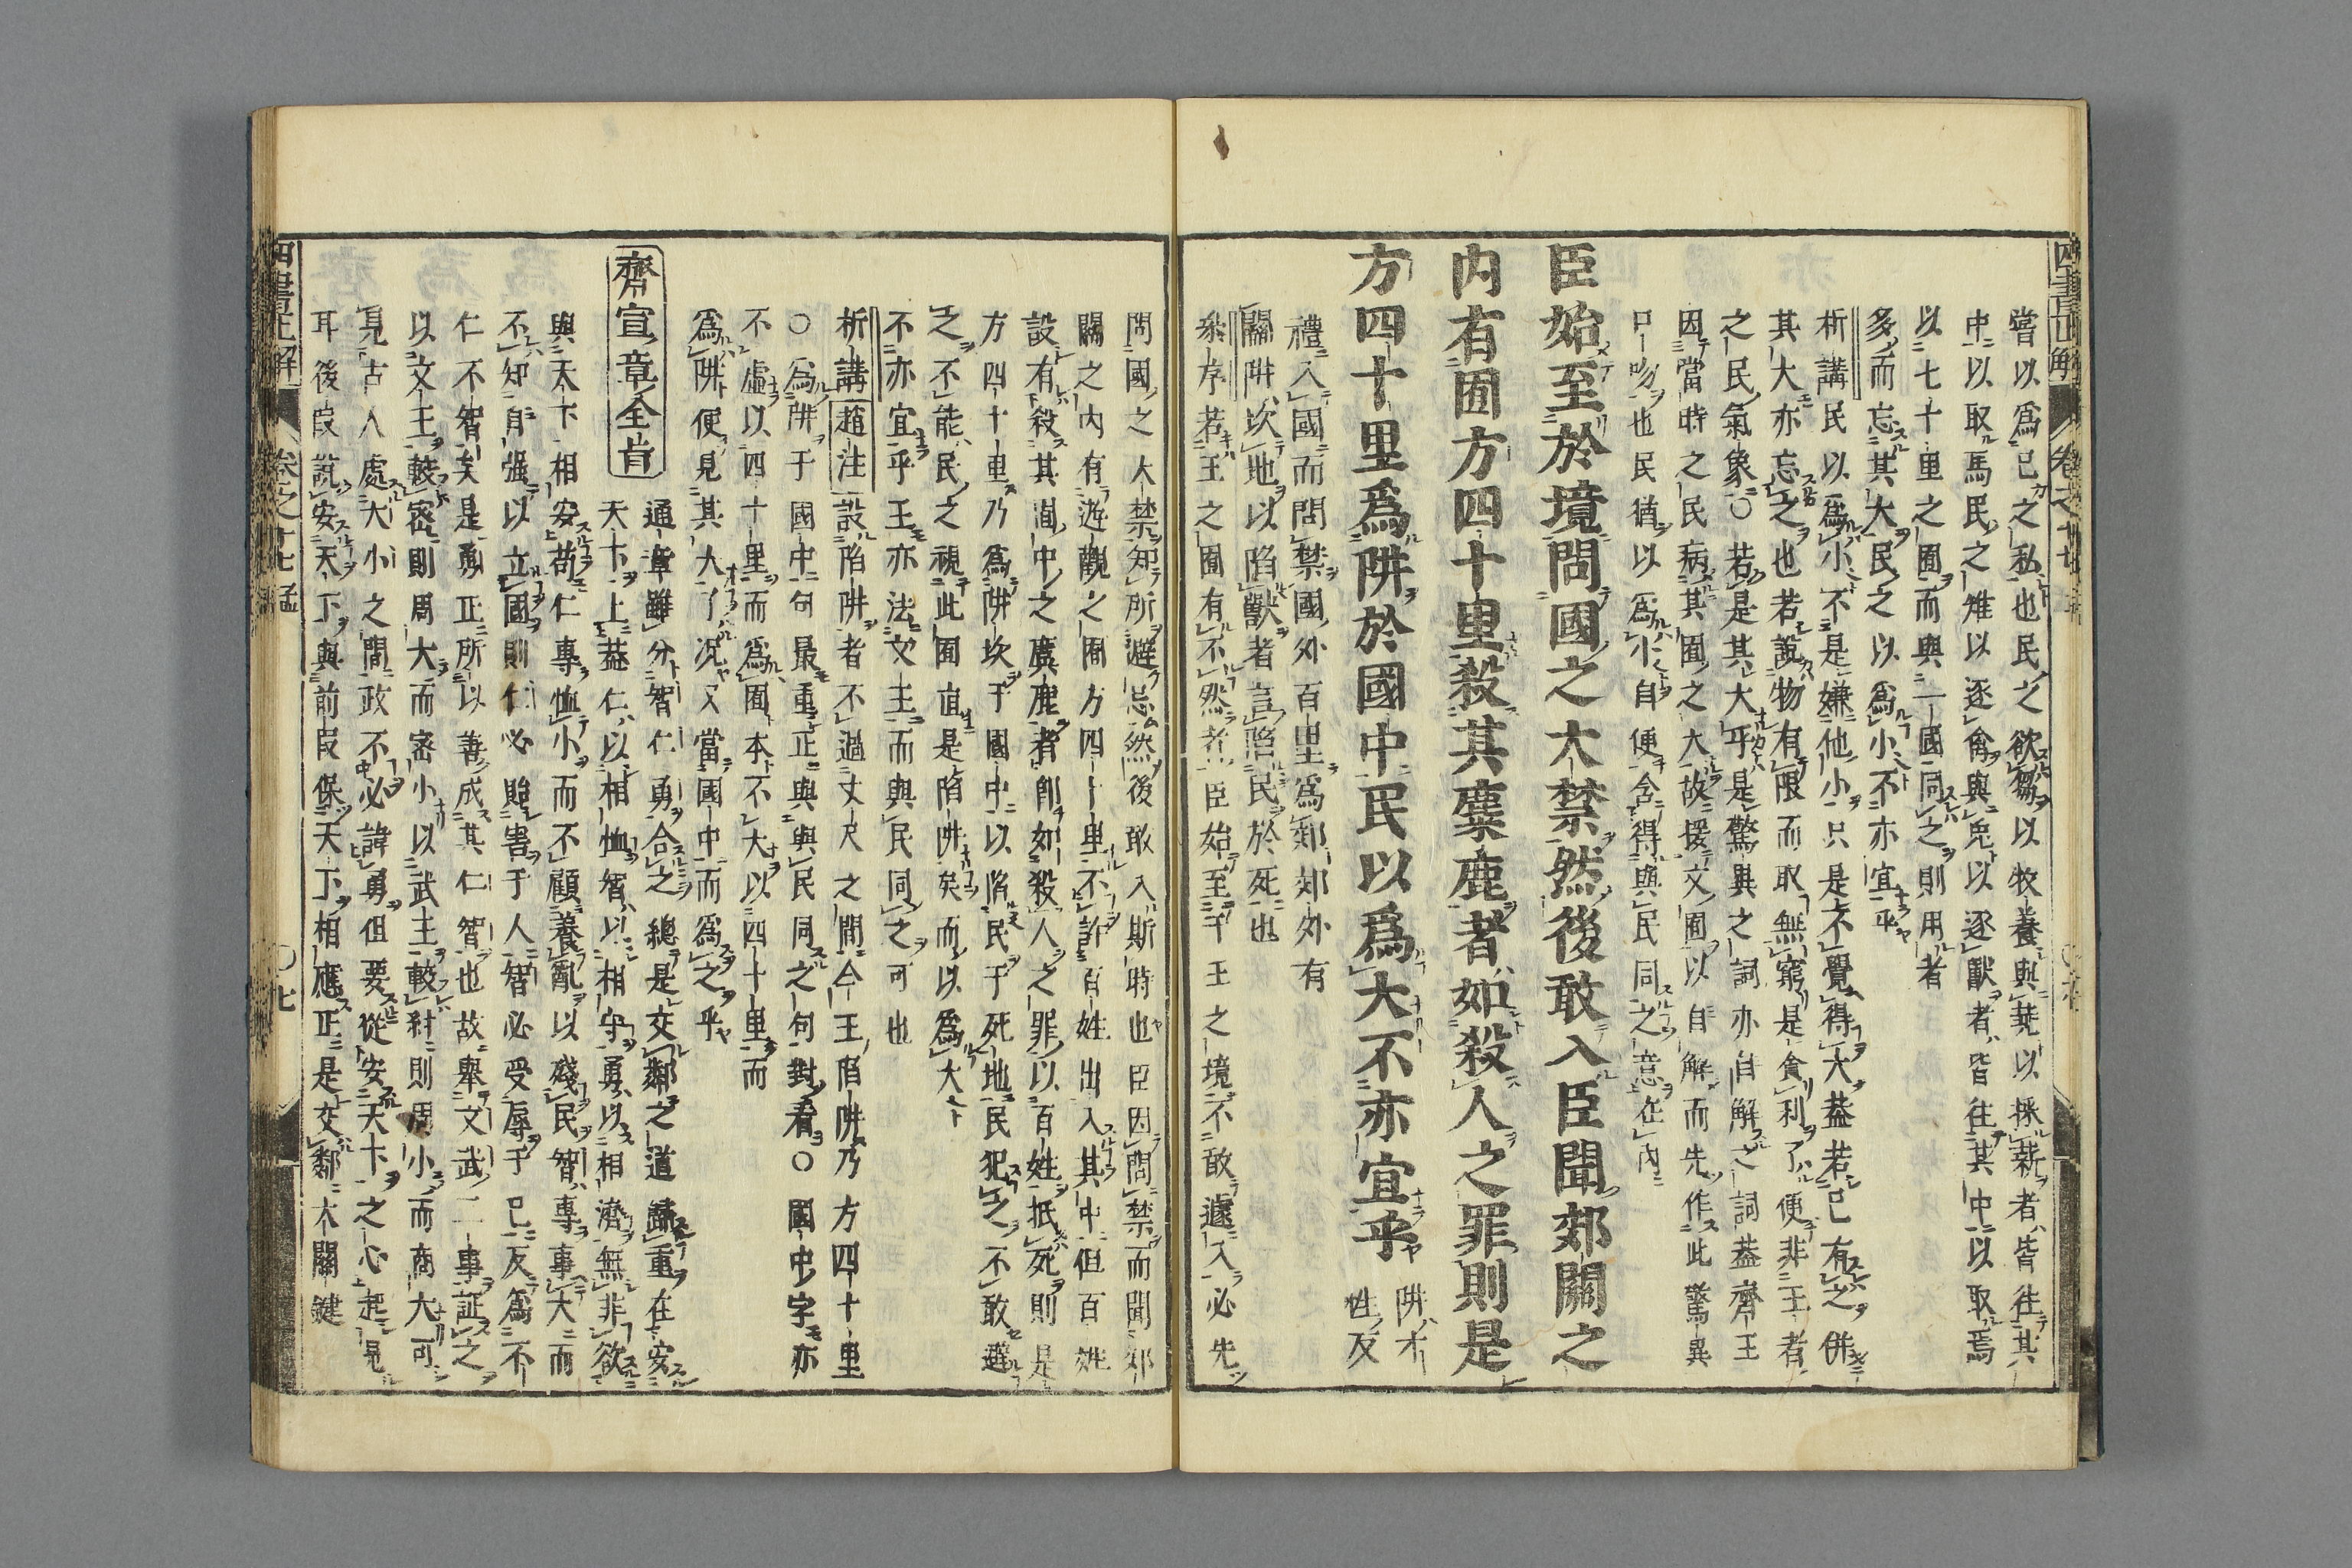 嘗以爲己之私也民之欲芻以牧養與蕘以採薪者皆往其
中以取焉民之雉以逐禽與兎以逐獸者皆往其中以取焉
以七十里之囿而與一國同之則用者
多而忘其大民之以爲小不亦宜乎
析講民以爲小不是嫌他小只是不覺得大葢若己有之併
其大亦忘之也若說物有限而取無窮是食利了便非王者
之民氣象〇若是其大乎是驚異之詞亦自解之詞葢齊王
因當時之民病其囿之大故援文囿以自解而先作此驚異
口吻也民猶以爲小自便含得與民同之意在內
臣始至於境問國之大禁然後敢入臣聞郊關之
内有囿方四十里殺其麋鹿者如殺人之罪則是
方四十里爲阱於國中民以爲大不亦宜乎
阱才
性反
禮入國而問禁國外百里爲郊郊外有
關阱坎地以陷獸者言陷民於死也
条序若王之囿有不然者臣始至于王之境不敢遽入必先
問國之大禁知所避忌然後敢入斯時也臣因問禁而聞郊
關之内有遊觀之囿方四十里不許百姓出入其中但百姓
設有殺其囿中之麋鹿者卽如殺人之罪以百姓抵死則是
方四十里乃爲阱坎于國中以陷民于死地民犯之不敢避
之不能民之視此囿直是陷阱矣而以爲大
不亦宜乎王亦法文王而與民同之可也
析講趙注設陷阱者不過丈尺之間今王陷阱乃方四十里
〇為阱于國中句最重正與與民同之句對看〇國中字亦
不虛以四十里而爲囿本不大以四十里而
爲阱便見其大了况又當國中而爲之乎
齊宣章全旨
通章雖分智仁勇合之總是交鄰之道歸重在安
天下上葢仁以相恤智以相守勇以相濟無非欲
與天下相安苟仁專恤小而不顧養亂以殘民智專事大而
不知自强以立國則仁必貽害于人智必受辱于己反爲不
仁不智矣是勇正所以善成其仁智也故舉文武二事証之
以文王較密則周大而密小以武王較紂則周小而商大可
見古人處大小之間政不必諱勇但要從安天下之心起見
耳後叚說安天下與前叚保天下相應正是交鄰大關鍵
四書正解
卷之十七孟
〇七
四書正解